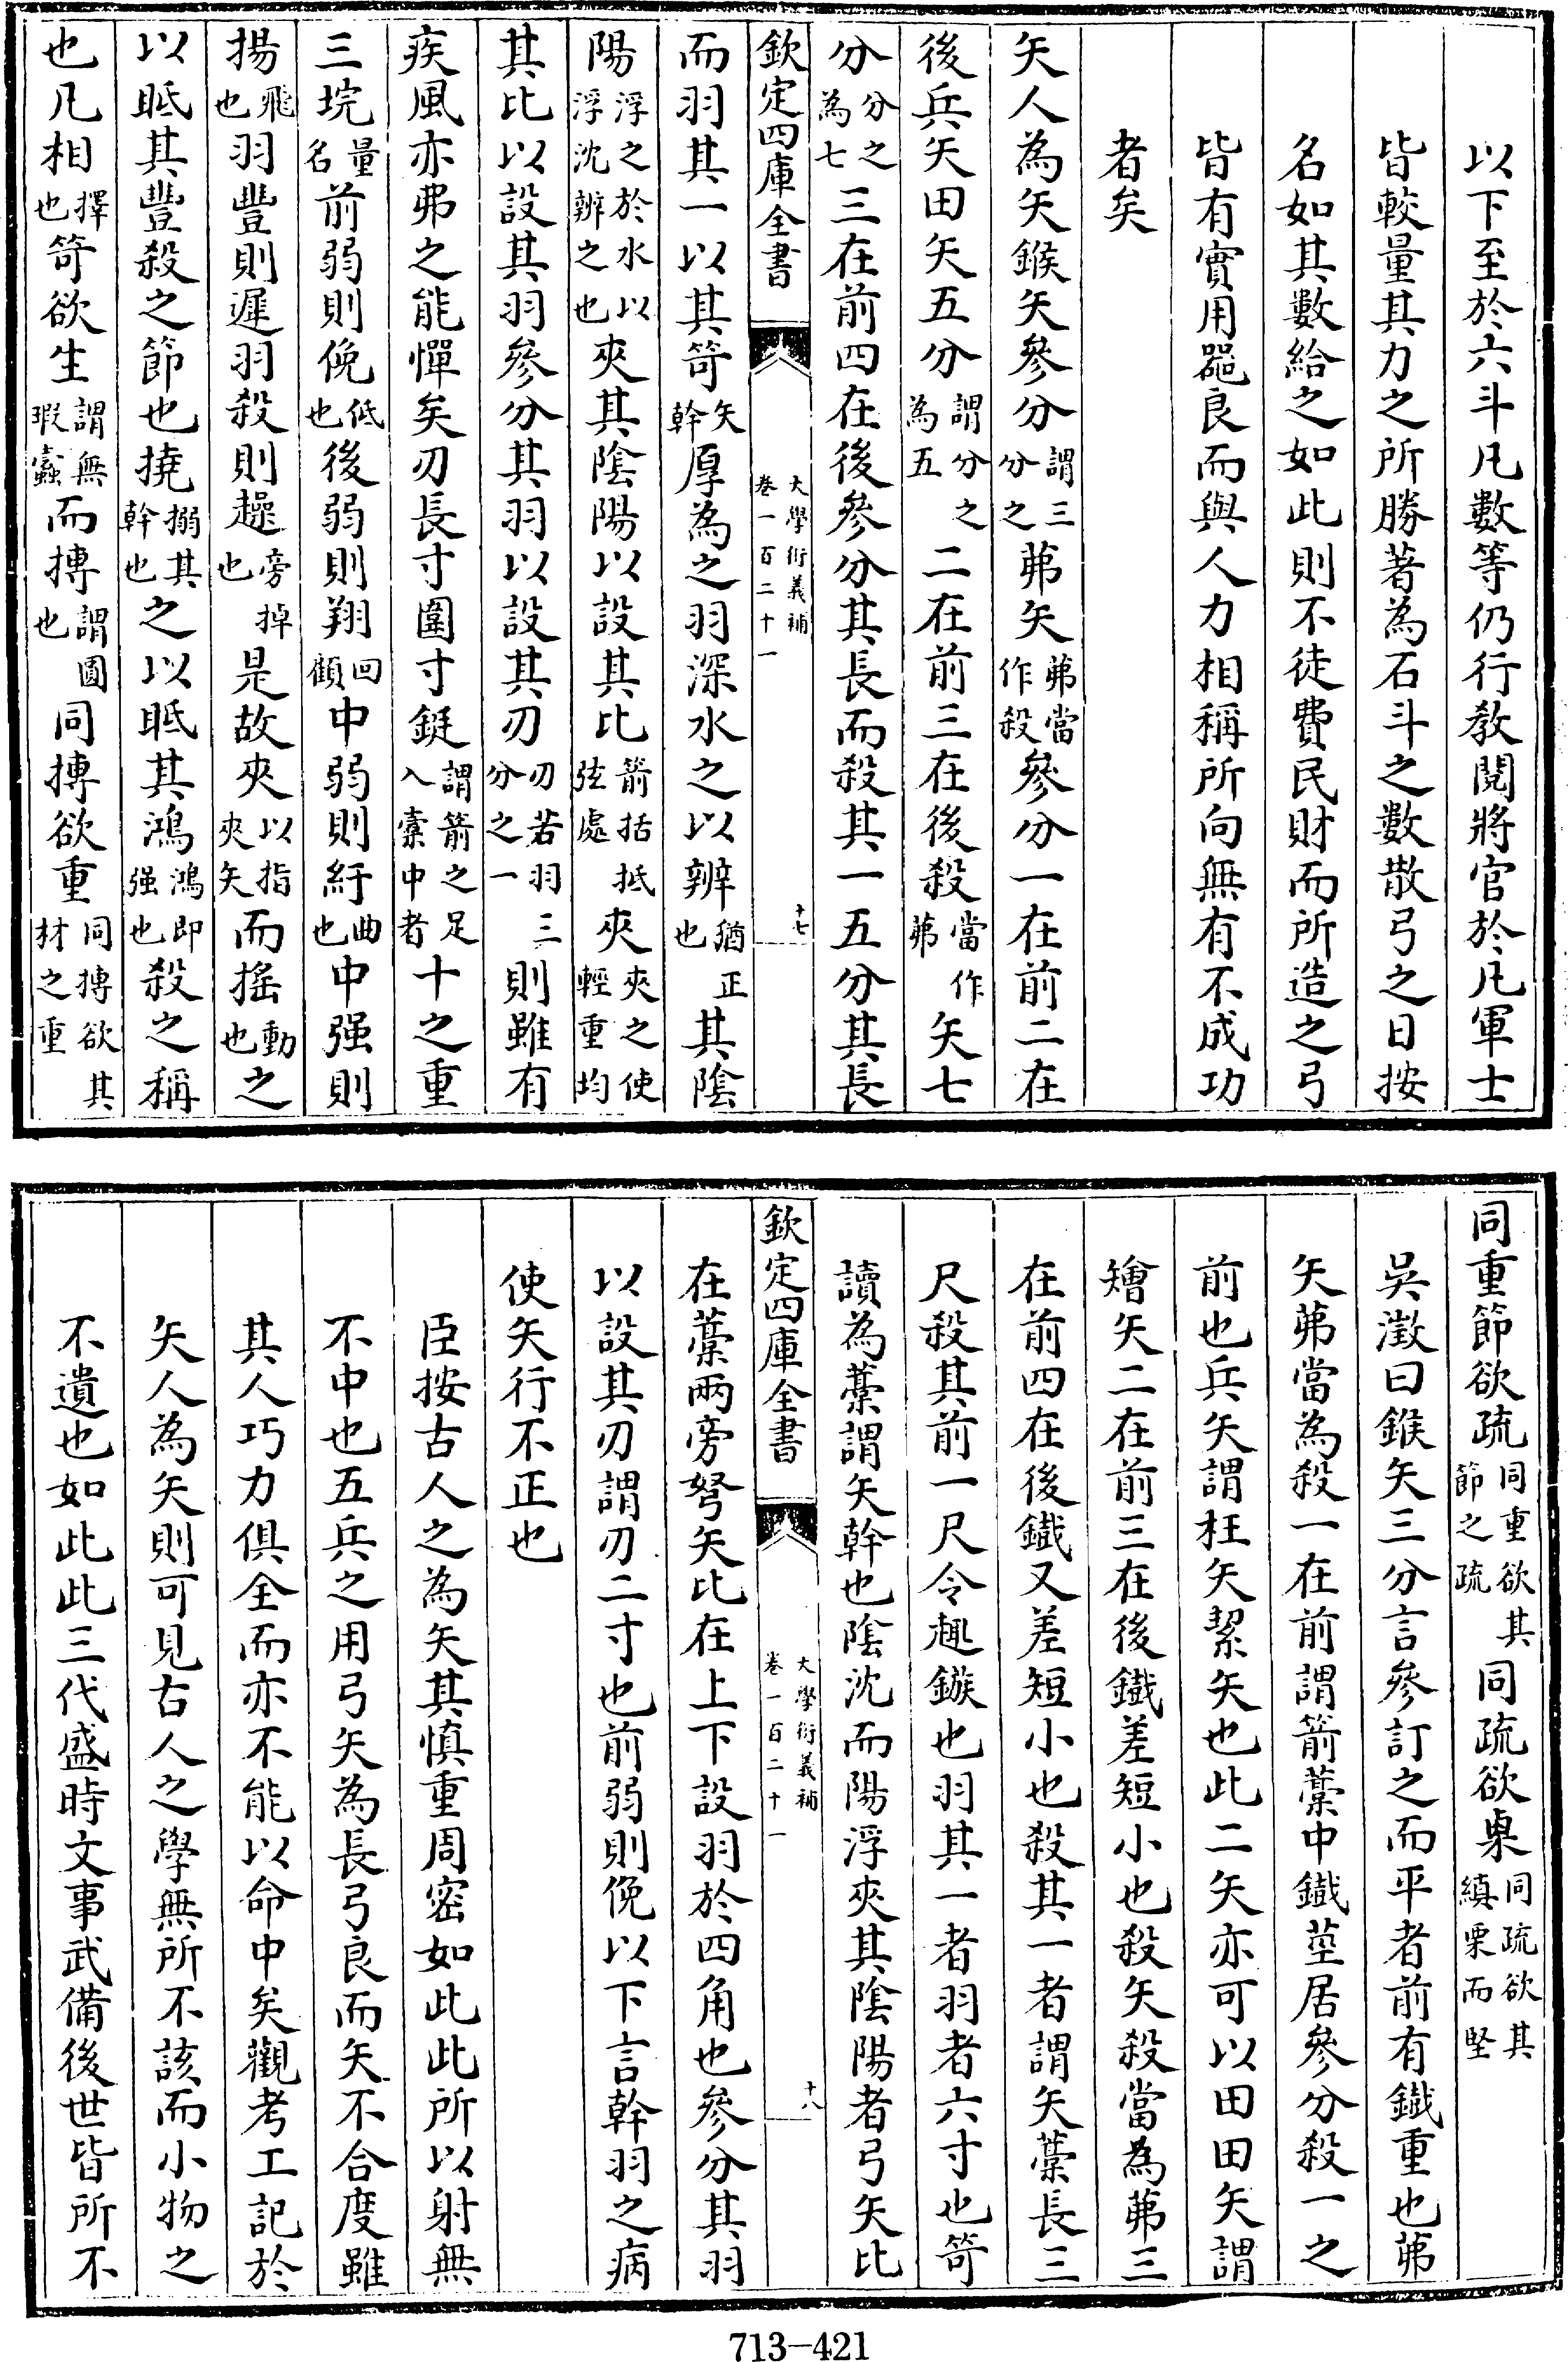 以下至於六斗凡數等仍行教閱將官於凡軍士
皆較量其力之所勝著為石斗之數散弓之日按
名如其數給之如此則不徒費民財而所造之弓
皆有實用器良而與人力相稱所向無有不成功
者矣
矢人為矢鍭矢參分謂三分之茀矢茀當作殺參分一在前二在
後兵矢田矢五分謂分之為五二在前三在後殺當作茀矢七
分分之為七三在前四在後參分其長而殺其一五分其長
欽定四庫全書 大學衍義補 卷一百二十一 十七
而羽其一以其笴矢幹厚為之羽深水之以辨猶正也其陰
陽浮之於水以浮沈辨之也夾其陰陽以設其比箭括抵弦處夾夾之使輕重均
其比以設其羽參分其羽以設其刃刃若羽三分之一則雖有
疾風亦弗之能憚矣刃長寸圍寸鋌謂箭之足入槀中者十之重
三垸量名前弱則俛低也後弱則翔回顧中弱則紆曲也中强則
揚飛也羽豐則遲羽殺則趮旁掉也是故夾以指夾矢而搖動也之
以眡其豐殺之節也撓搦其幹也之以眡其鴻鴻即强也殺之稱
也凡相擇也笴欲生謂無瑕蠹而摶謂圓也同摶欲重同摶欲其材之重
同重節欲疏同重欲其節之疏同疏欲㮚同疏欲其縝栗而堅
吳澂曰鍭矢三分言參訂之而平者前有鐵重也茀
矢茀當為殺一在前謂箭槀中鐵莖居參分殺一之
前也兵矢謂枉矢絜矢也此二矢亦可以田田矢謂
矰矢二在前三在後鐵差短小也殺矢殺當為茀三
在前四在後鐵又差短小也殺其一者謂矢槀長三
尺殺其前一尺令趣鏃也羽其一者羽者六寸也笴
讀為槀謂矢幹也陰沈而陽浮夾其陰陽者弓矢比
欽定四庫全書 大學衍義補 卷一百二十一 十八
在槀兩旁弩矢比在上下設羽於四角也參分其羽
以設其刃謂刃二寸也前弱則俛以下言幹羽之病
使矢行不正也
臣按古人之為矢其慎重周密如此此所以射無
不中也五兵之用弓矢為長弓良而矢不合度雖
其人巧力俱全而亦不能以命中矣觀考工記於
矢人為矢則可見古人之學無所不該而小物之
不遺也如此此三代盛時文事武備後世皆所不
713-421